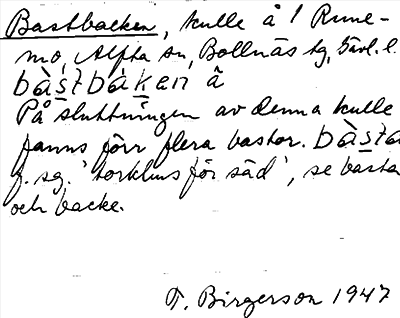 Bastbacken, kulle å 1 Rune-
mo, Alfta sn, Bollnäs tg, Gävl. l.
bàs̱tbàḵen ã
På sluttningen av denna kulle
fanns förr flera bastor. bàs̱ta
f. sg. 'torkhus för säd', se basta
och backe.
T. Birgerson 1947